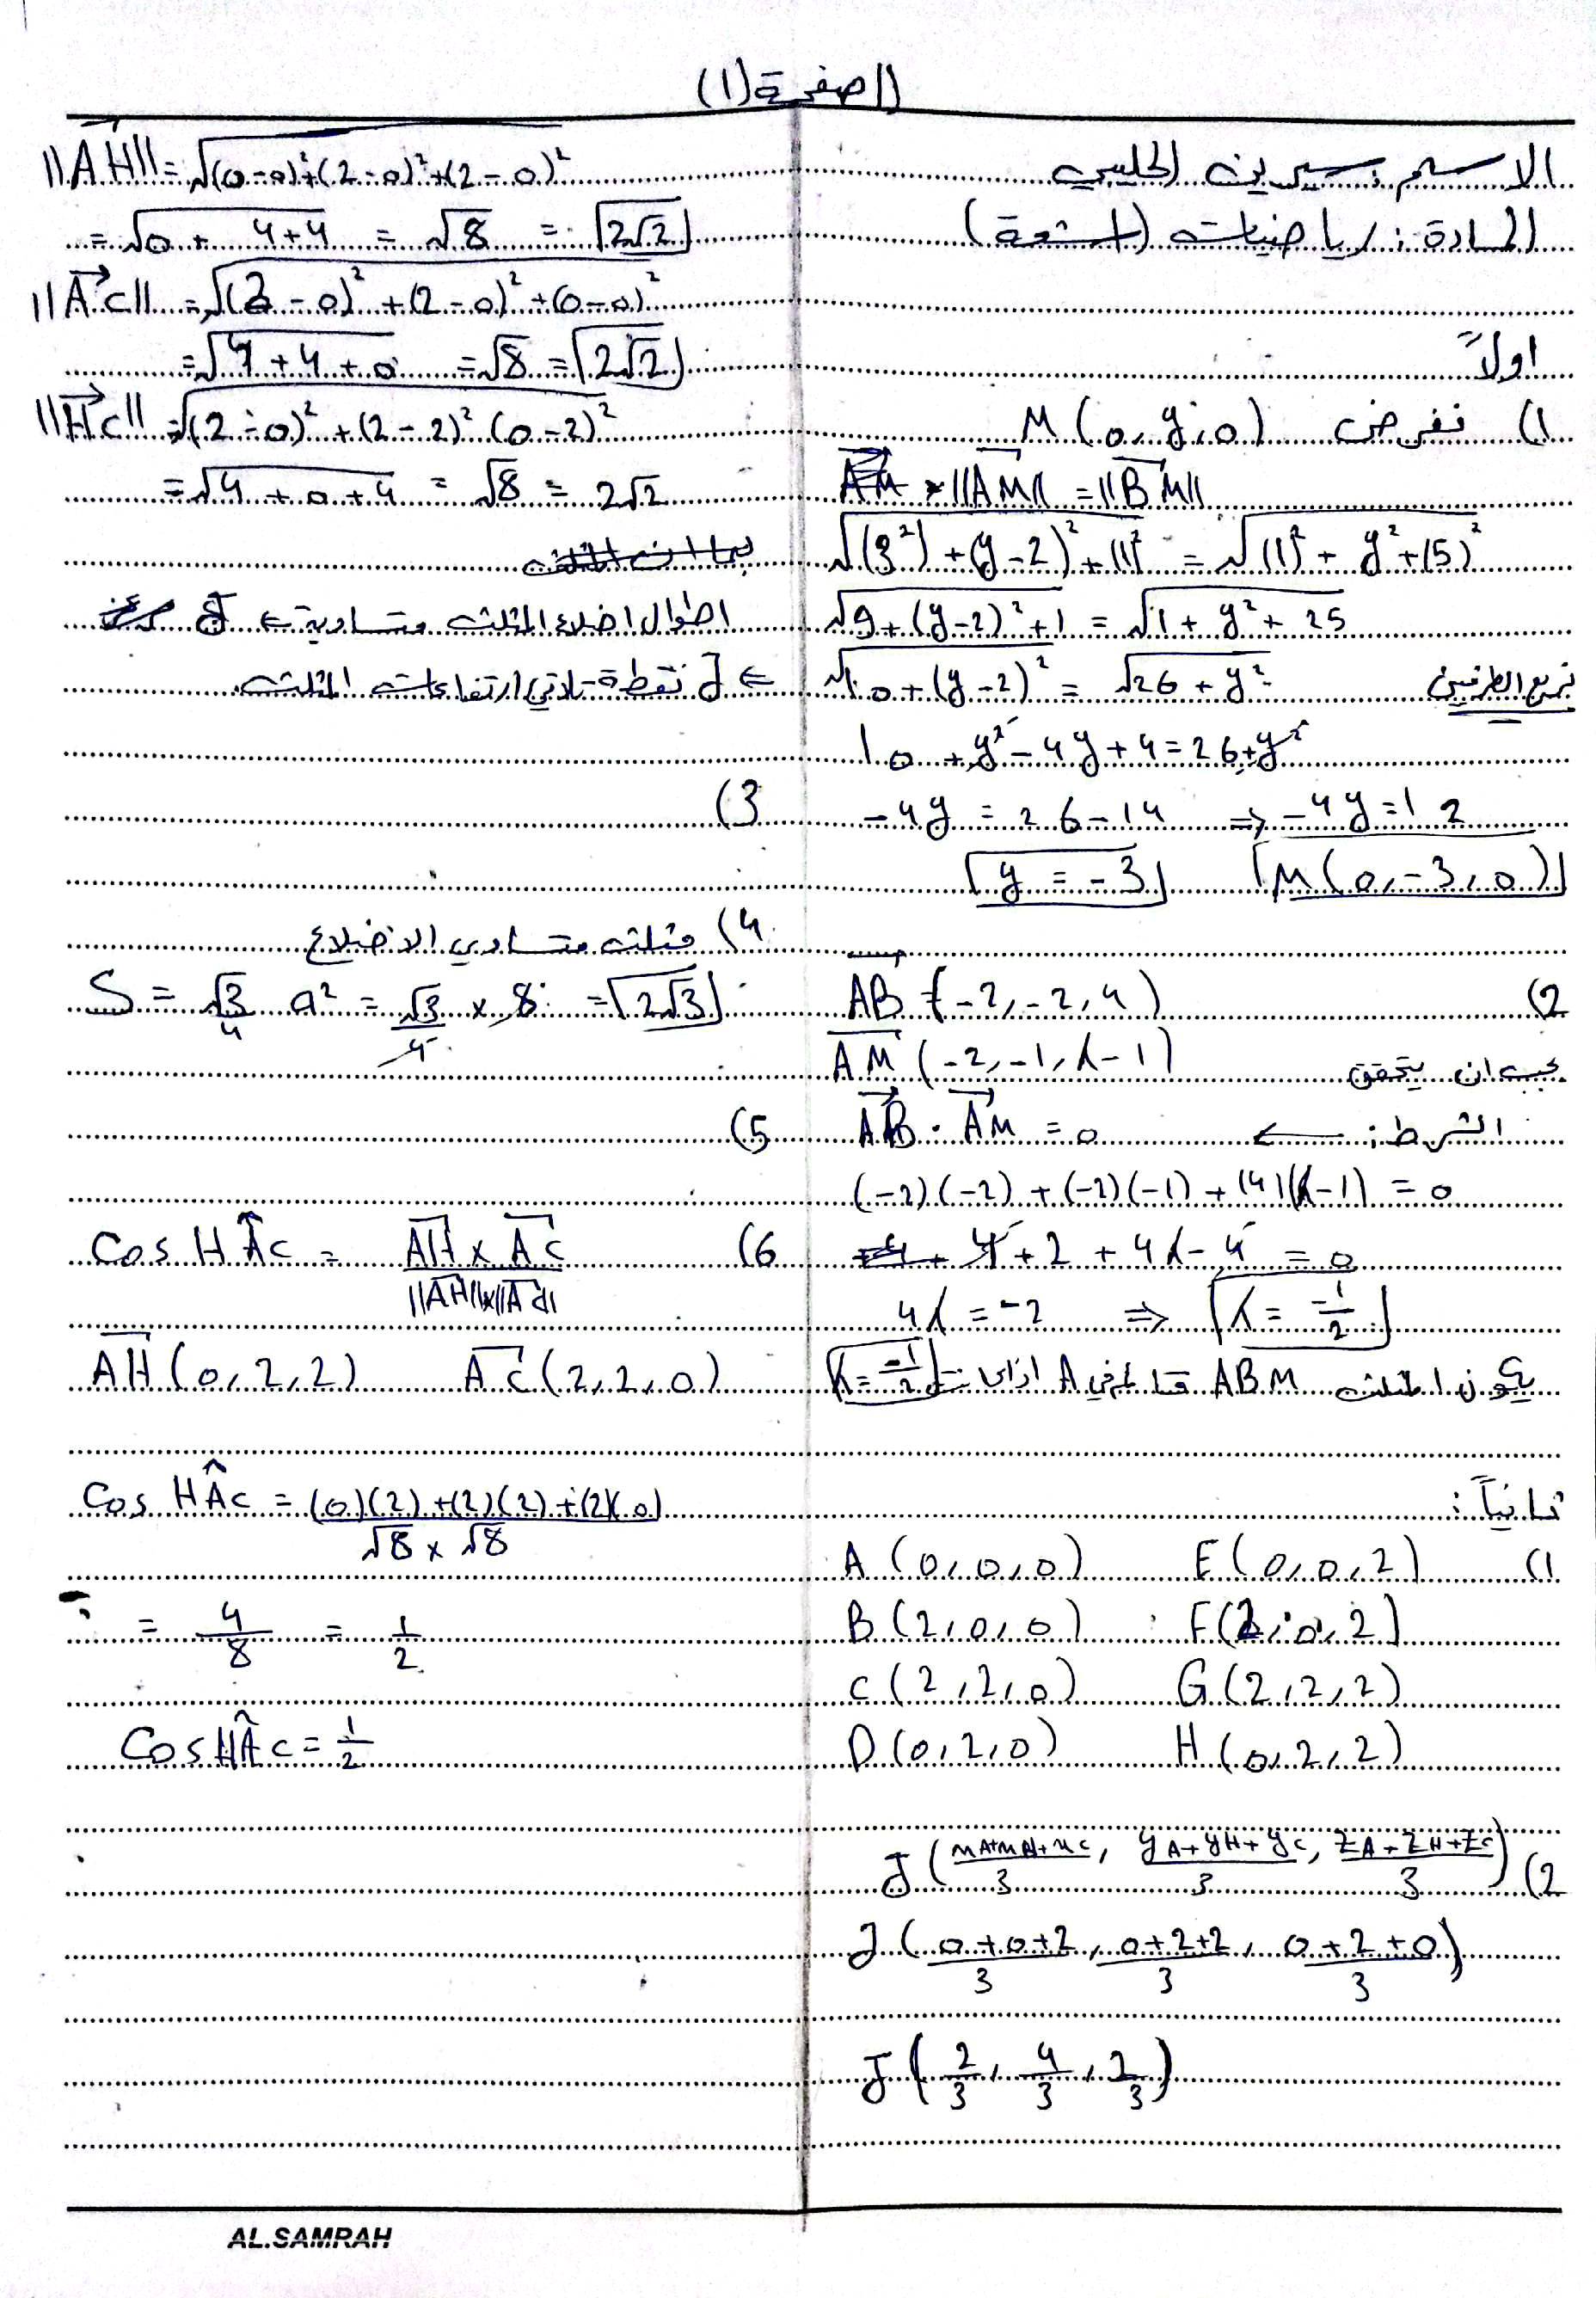 الصفحة (1)
الاسم: سيرين الحلبي
المادة: رياضيات (اشعة)
اولاً
1) نفرض M(0,y,0)
||AM|| = ||BM||
√(3²)+(y-2)²+(1)² = √(1)²+y²+(5)²
√9+(y-2)²+1 = √1+y²+25
√10+(y-2)² = √26+y² نربع الطرفين
10+y²-4y+4=26+y²
-4y = 26-14 ⇒ -4y=12
y = -3 M(0,-3,0)
2) AB(-2,-2,4)
AM(-2,-1,k-1) يجب ان يتحقق
الشرط: ← AB · AM = 0
(-2)(-2)+(-2)(-1)+(4)(k-1) = 0
4+2+4k-4 = 0
4k = -2 ⇒ k = -1/2
يكون المثلث ABM قائم في A اذا كانت k = -1/2
ثانياً:
1) A(0,0,0) E(0,0,2)
B(2,0,0) F(2,0,2)
C(2,2,0) G(2,2,2)
D(0,2,0) H(0,2,2)
2) J((xA+xH+xC)/3, (yA+yH+yC)/3, (zA+zH+zC)/3)
J((0+0+2)/3, (0+2+2)/3, (0+2+0)/3)
J(2/3, 4/3, 2/3)
||AH|| = √(0-0)²+(2-0)²+(2-0)²
= √0+4+4 = √8 = 2√2
||AC|| = √(2-0)²+(2-0)²+(0-0)²
= √4+4+0 = √8 = 2√2
||HC|| = √(2-0)²+(2-2)²(0-2)²
= √4+0+4 = √8 = 2√2
اطوال اضلاع المثلث متساوية ⇐
⇐ J نقطة تلاقي ارتفاعات المثلث
3)
4) مثلث متساوي الاضلاع
S = √3/4 a² = √3/4 × 8 = 2√3
5)
6) Cos HÂC = AH × AC / ||AH||×||AC||
AH(0,2,2) AC(2,2,0)
Cos HÂC = (0)(2)+(2)(2)+(2)(0) / √8 × √8
= 4/8 = 1/2
Cos HÂC = 1/2
AL.SAMRAH